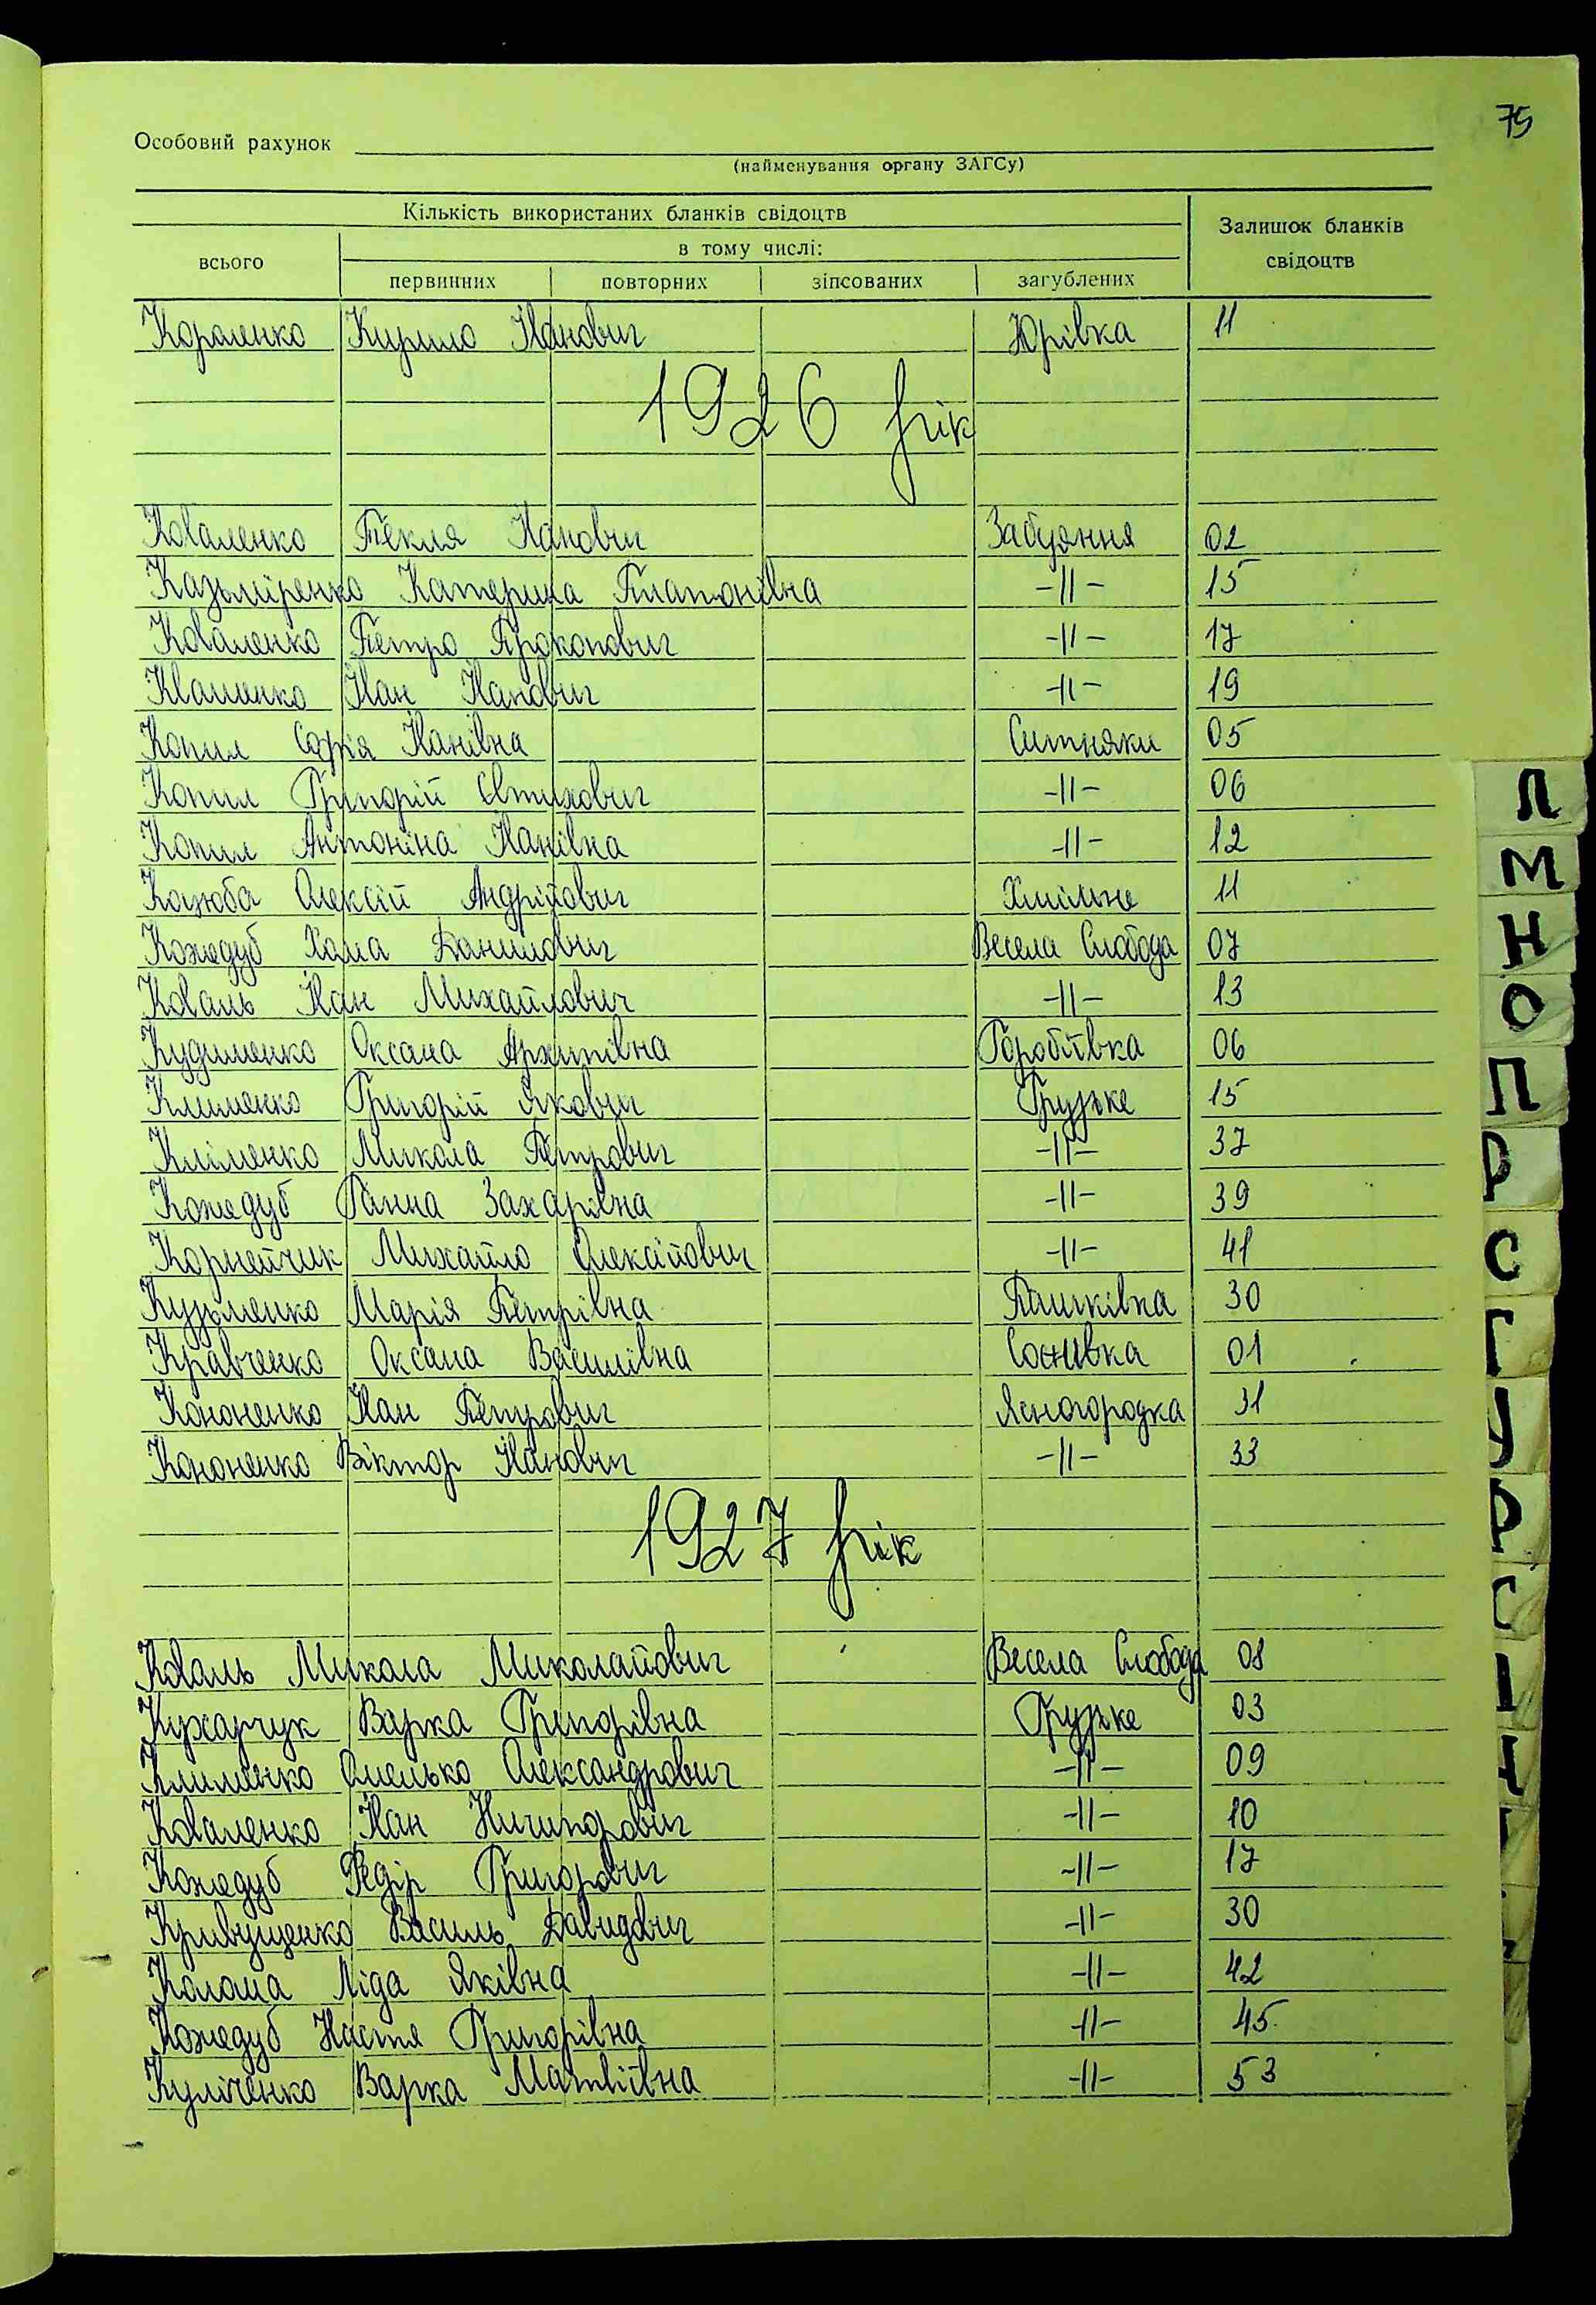 75
Особовий рахунок
(найменування органу ЗАГСу)
Кількість використаних бланків свідоцтв
Залишок бланків свідоцтв
всього
в тому числі:
первинних повторних зіпсованих загублених
Короленко Кирило Іванович Юрівка 11
1926 рік
Коваленко Текля Іванович Забуяння 02
Казьміренко Катерина Платонівна -||- 15
Коваленко Петро Прокопович -||- 17
Іван Іванович -||- 19
Копил Софія Іванівна Ситняки 05
Копил Григорій Євтихович -||- 06
Копил Антоніна Іванівна -||- 12
Козюба Олексій Андрійович Хмільне 11
Кожедуб Хома Данилович Весела Слобода 07
Коваль Іван Михайлович -||- 13
Кудименко Оксана Архипівна Горобіївка 06
Клименко Григорій Якович Грузьке 15
Кліменко Микола Петрович -||- 37
Кожедуб Ганна Захарівна -||- 39
Корнейчик Михайло Олексійович -||- 41
Кузьменко Марія Петрівна Пашківка 30
Кравченко Оксана Василівна Соснівка 01
Кононенко Іван Петрович Ясногородка 31
Кононенко Віктор Іванович -||- 33
1927 рік
Коваль Микола Миколайович Весела Слобода 08
Кухарчук Варка Григорівна Грузьке 03
Клименко Омелько Олександрович -||- 09
Коваленко Іван Ничипорович -||- 10
Кожедуб Федір Григорович -||- 17
Кривущенко Василь Давидович -||- 30
Колоша Ліда Яківна -||- 42
Кожедуб Настя Григорівна -||- 45
Куліченко Варка Матвіївна -||- 53
Л
М
Н
О
П
Р
С